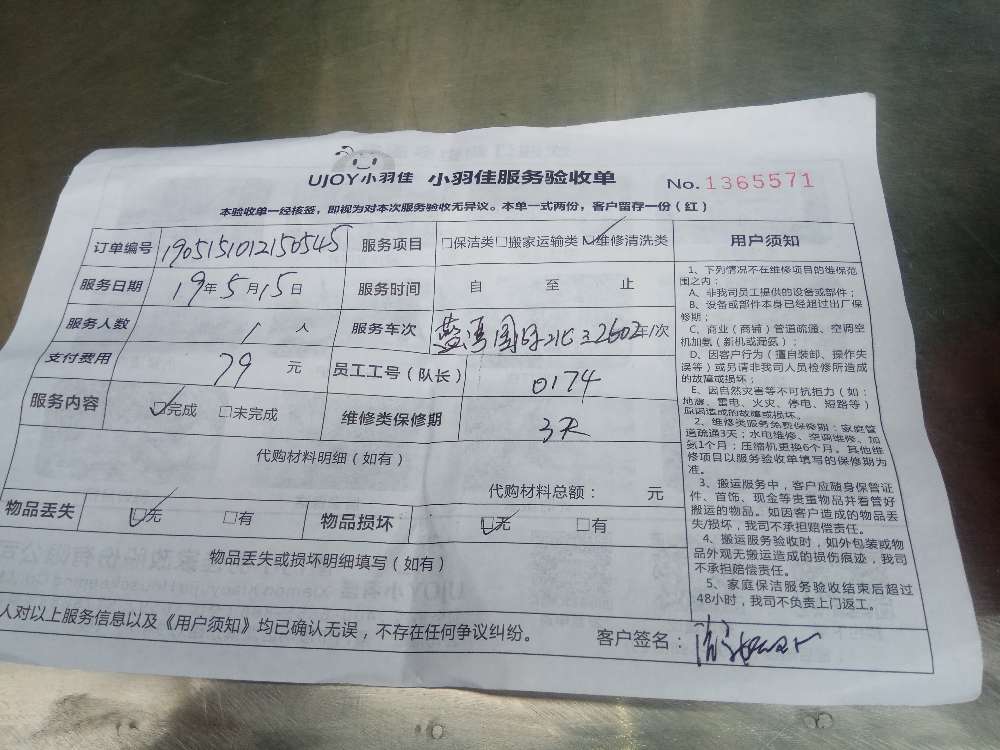 UJOY小羽佳 小羽佳服务验收单 No. 1365571
本验收单一经核签，即视为对本次服务验收无异议。本单一式两份，客户留存一份（红）
订单编号 1905151012150545 服务项目 □保洁类□搬家运输类☑维修清洗类
服务日期 19年5月15日 服务时间 自 至 止
服务人数 1 人 服务车次 2602 年/次
支付费用 79 元 员工工号（队长） 0174
服务内容 ☑完成 □未完成 维修类保修期 3天
代购材料明细（如有）
代购材料总额： 元
物品丢失 ☑无 □有 物品损坏 ☑无 □有
物品丢失或损坏明细填写（如有）
人对以上服务信息以及《用户须知》均已确认无误，不存在任何争议纠纷。 客户签名：
用户须知
1、下列情况不在维修项目的维保范
围之内：
A、非我司员工提供的设备或部件；
B、设备或部件本身已经超过出厂保
修期；
C、商业（商铺）管道疏通、空调空
机加氨（新机或漏氨）；
D、因客户行为（擅自装卸、操作失
误等）或另请非我司人员检修所造成
的故障或损坏；
E、因自然灾害等不可抗拒力（如：
地震、雷电、火灾、停电、短路等）
原因造成的故障或损坏。
2、维修类服务免费保修期：家庭管
道疏通3天；水电维修、空调维修、加
氨1个月；压缩机更换6个月。其他维
修项目以服务验收单填写的保修期为
准。
3、搬运服务中，客户应随身保管证
件、首饰、现金等贵重物品并看管好
搬运的物品。如因客户造成的物品丢
失/损坏，我司不承担赔偿责任。
4、搬运服务验收时，如外包装或物
品外观无搬运造成的损伤痕迹，我司
不承担赔偿责任。
5、家庭保洁服务验收结束后超过
48小时，我司不负责上门返工。